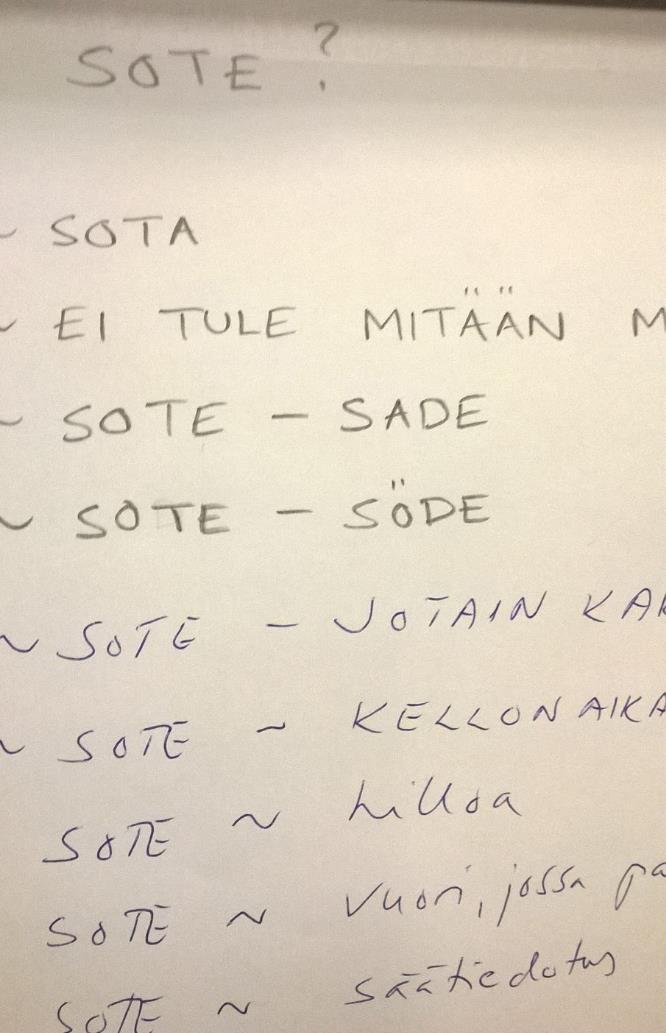 SOTE ?
~ SOTA
~ EI TULE MITÄÄN M
~ SOTE - SADE
~ SOTE - SÖDE
~ SOTE - JOTAIN KAR
~ SOTE ~ KELLONAIKA
SOTE ~ hilloa
SOTE ~ vuori, jossa pa
SOTE ~ säätiedotus